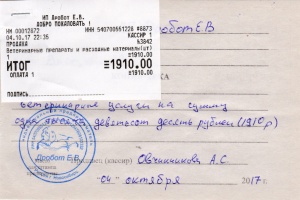 ИП Дробот Е.В.
ДОБРО ПОЖАЛОВАТЬ !
ММ 00012872 ИНН 540700651228 #6873
04.10.17 22:35 КАССИР 1
ПРОДАЖА #3842
Ветеринарные препараты и расходные материалы(шт)
1 ≡1910.00
ИТОГ ≡1910.00
ОПЛАТА 1 ≡1910.00
подпись
Дробот Е.В
ветеринарные услуги на сумму
одна тысяча девятьсот десять рублей (1910 р)
(кассир) Овчинникова А.С
Дробот Е.В.
"04" октября 2017г.